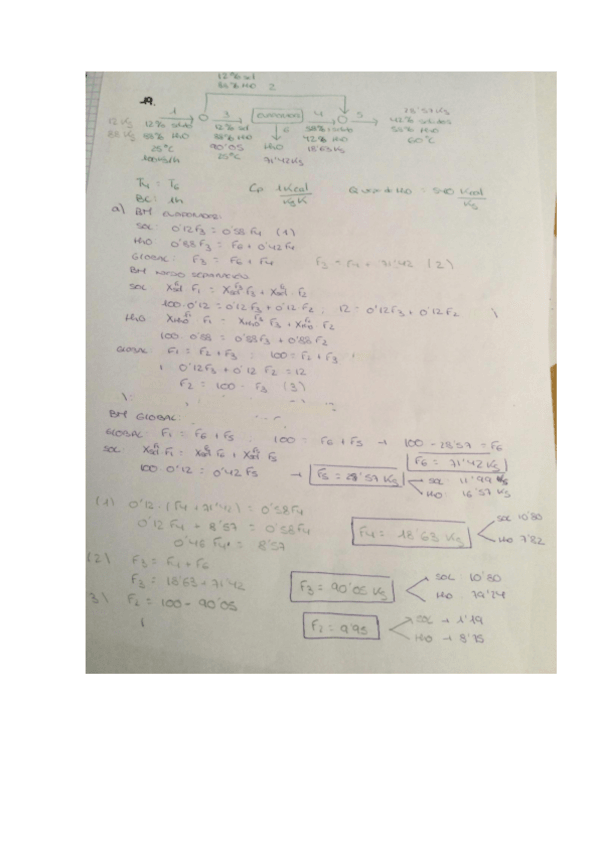 12% sol
88% H₂O 2
19.
1 3 EVAPORADOR 4 5 28'57 Kg
12 Kg 12% sol 12% sol 6 58% 42%
88 Kg 88% H₂O 88% H₂O H₂O 42% H₂O 58% H₂O
25°C 90'05 18'63 Kg 60°C
100 Kg/h 25°C 71'42 Kg
T4 = T6 Cp 1 Kcal/Kg K H₂O = 540 Kcal/Kg
BC: 1h
a) BM EVAPORADOR:
SOL: 0'12 F3 = 0'58 F4 (1)
H₂O: 0'88 F3 = F6 + 0'42 F4
GLOBAL: F3 = F6 + F4 F3 = F4 + 71'42 (2)
BM NUDO SEPARACIÓN
SOL: Xsol F1 = Xsol F3 + Xsol F2
100·0'12 = 0'12 F3 + 0'12 F2 ; 12 = 0'12 F3 + 0'12 F2
H₂O: XH₂O F1 = XH₂O F3 + XH₂O F2
100·0'88 = 0'88 F3 + 0'88 F2
GLOBAL: F1 = F2 + F3 ; 100 = F2 + F3
0'12 F3 + 0'12 F2 = 12
F2 = 100 - F3 (3)
BM GLOBAL:
GLOBAL: F1 = F6 + F5 ; 100 = F6 + F5 → 100 - 28'57 = F6
F6 = 71'42 Kg
SOL: Xsol F1 = Xsol F6 + Xsol F5
100·0'12 = 0'42 F5 → F5 = 28'57 Kg SOL: 11'99 Kg
H₂O: 16'57 Kg
(1) 0'12·(F4 + 71'42) = 0'58 F4
0'12 F4 + 8'57 = 0'58 F4
0'46 F4 = 8'57
F4 = 18'63 Kg SOL 10'80
H₂O 7'82
(2) F3 = F4 + F6
F3 = 18'63 + 71'42
F3 = 90'05 Kg SOL 10'80
H₂O 79'24
3) F2 = 100 - 90'05
F2 = 9'95 SOL → 1'19
H₂O → 8'75